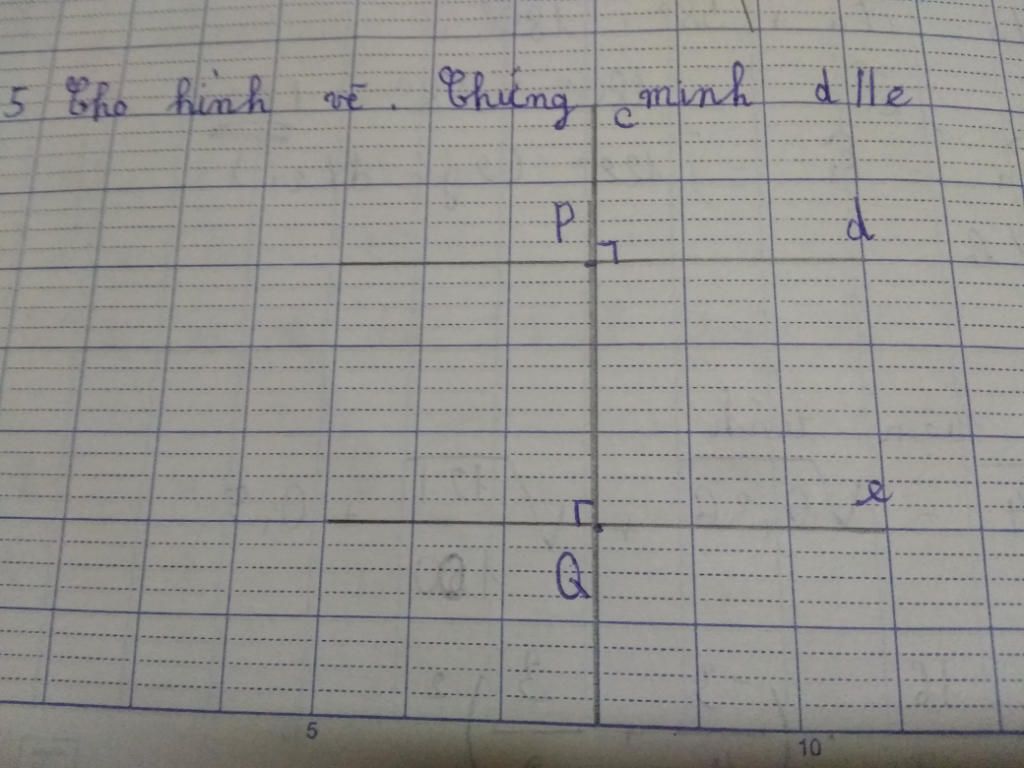 5 Cho hình vẽ. Chứng minh d//e
c
P
d
e
Q
5
10